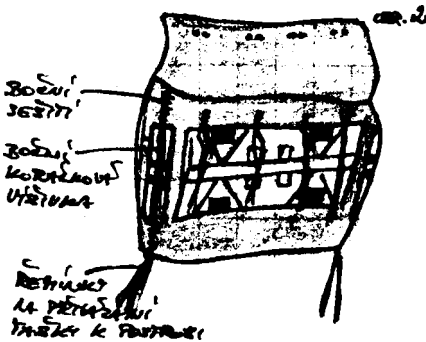 OBR. 2
BOČNÍ
SEŠITÍ
BOČNÍ
KORÁLKOVÁ
VÝŠIVKA
ŘEMÍNKY
NA PŘIVÁZÁNÍ
TAŠKY K POSTROJI